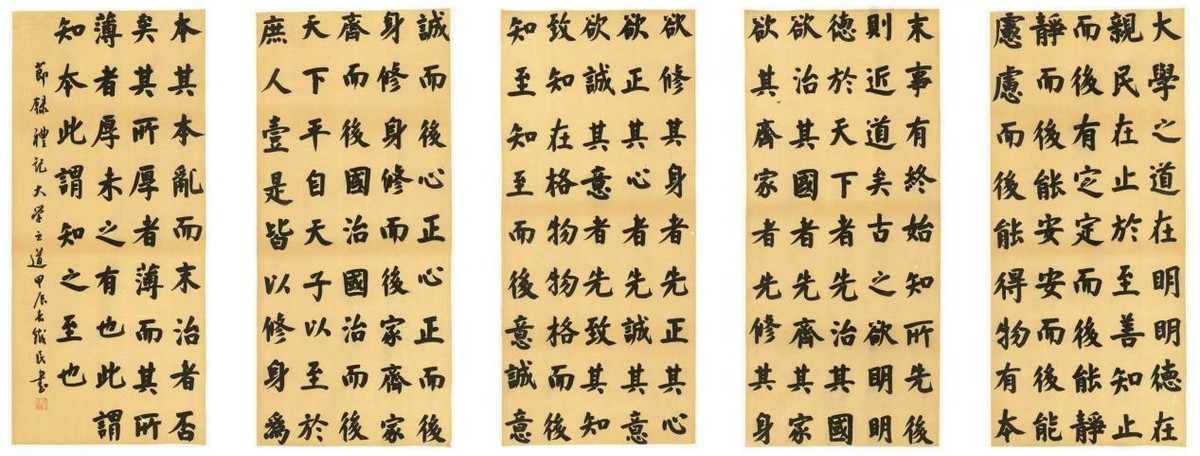 大學之道在明明德在
親民在止於至善知止
而後有定定而後能靜
靜而後能安安而後能
慮慮而後能得物有本
末事有終始知所先後
則近道矣古之欲明明
德於天下者先治其國
欲治其國者先齊其家
欲其齊家者先修其身
欲修其身者先正其心
欲正其心者先誠其意
欲誠其意者先致其知
致知在格物物格而後
知至知至而後意誠意
誠而後心正心正而後
身修身修而後家齊家
齊而後國治國治而後
天下平自天子以至於
庶人壹是皆以修身爲
本其本亂而末治者否
矣其所厚者薄而其所
薄者厚未之有也此謂
知本此謂知之至也
節錄禮記大學之道甲辰民書